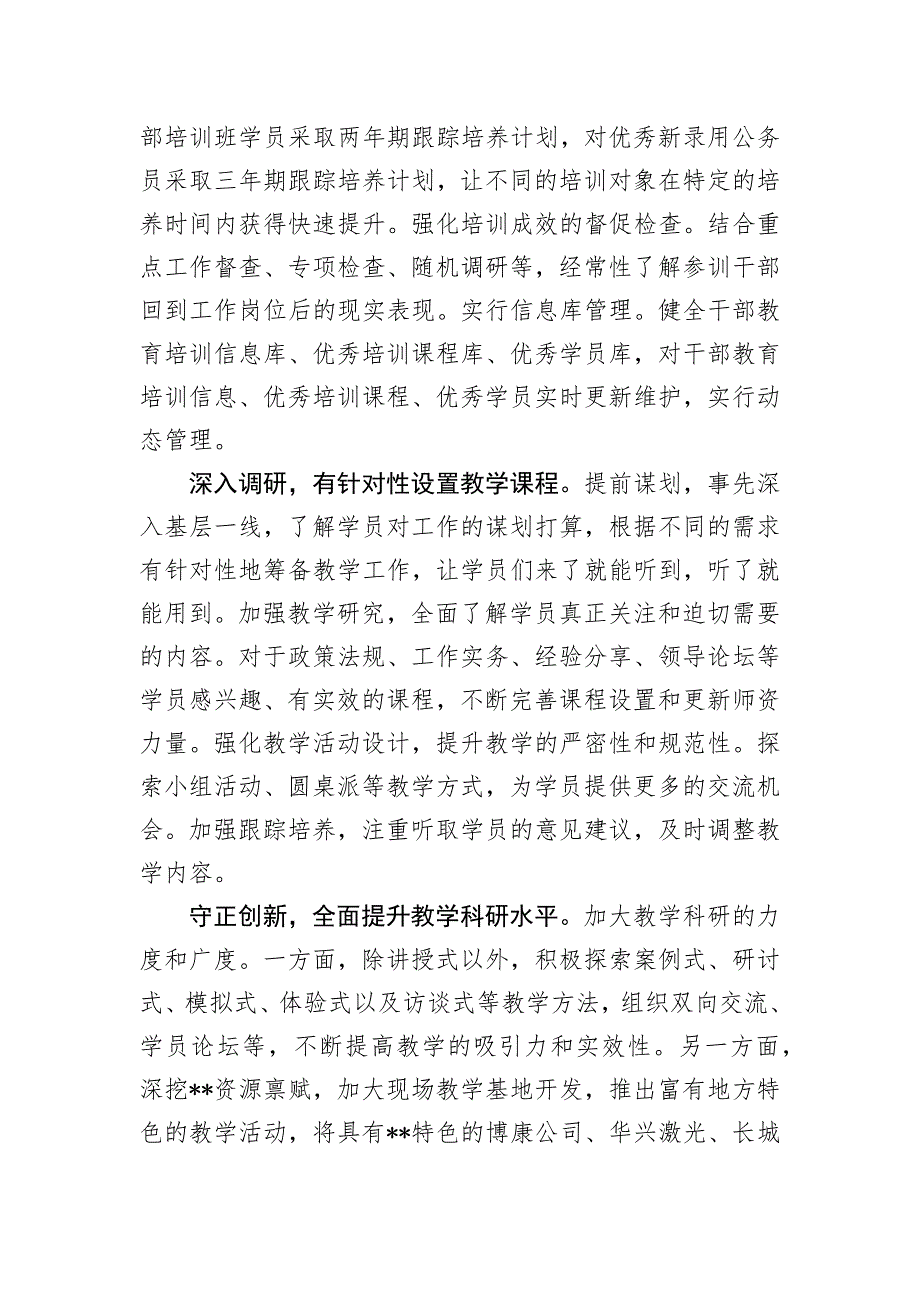 部培训班学员采取两年期跟踪培养计划，对优秀新录用公务
员采取三年期跟踪培养计划，让不同的培训对象在特定的培
养时间内获得快速提升。强化培训成效的督促检查。结合重
点工作督查、专项检查、随机调研等，经常性了解参训干部
回到工作岗位后的现实表现。实行信息库管理。健全干部教
育培训信息库、优秀培训课程库、优秀学员库，对干部教育
培训信息、优秀培训课程、优秀学员实时更新维护，实行动
态管理。
深入调研，有针对性设置教学课程。提前谋划，事先深
入基层一线，了解学员对工作的谋划打算，根据不同的需求
有针对性地筹备教学工作，让学员们来了就能听到，听了就
能用到。加强教学研究，全面了解学员真正关注和迫切需要
的内容。对于政策法规、工作实务、经验分享、领导论坛等
学员感兴趣、有实效的课程，不断完善课程设置和更新师资
力量。强化教学活动设计，提升教学的严密性和规范性。探
索小组活动、圆桌派等教学方式，为学员提供更多的交流机
会。加强跟踪培养，注重听取学员的意见建议，及时调整教
学内容。
守正创新，全面提升教学科研水平。加大教学科研的力
度和广度。一方面，除讲授式以外，积极探索案例式、研讨
式、模拟式、体验式以及访谈式等教学方法，组织双向交流、
学员论坛等，不断提高教学的吸引力和实效性。另一方面，
深挖**资源禀赋，加大现场教学基地开发，推出富有地方特
色的教学活动，将具有**特色的博康公司、华兴激光、长城